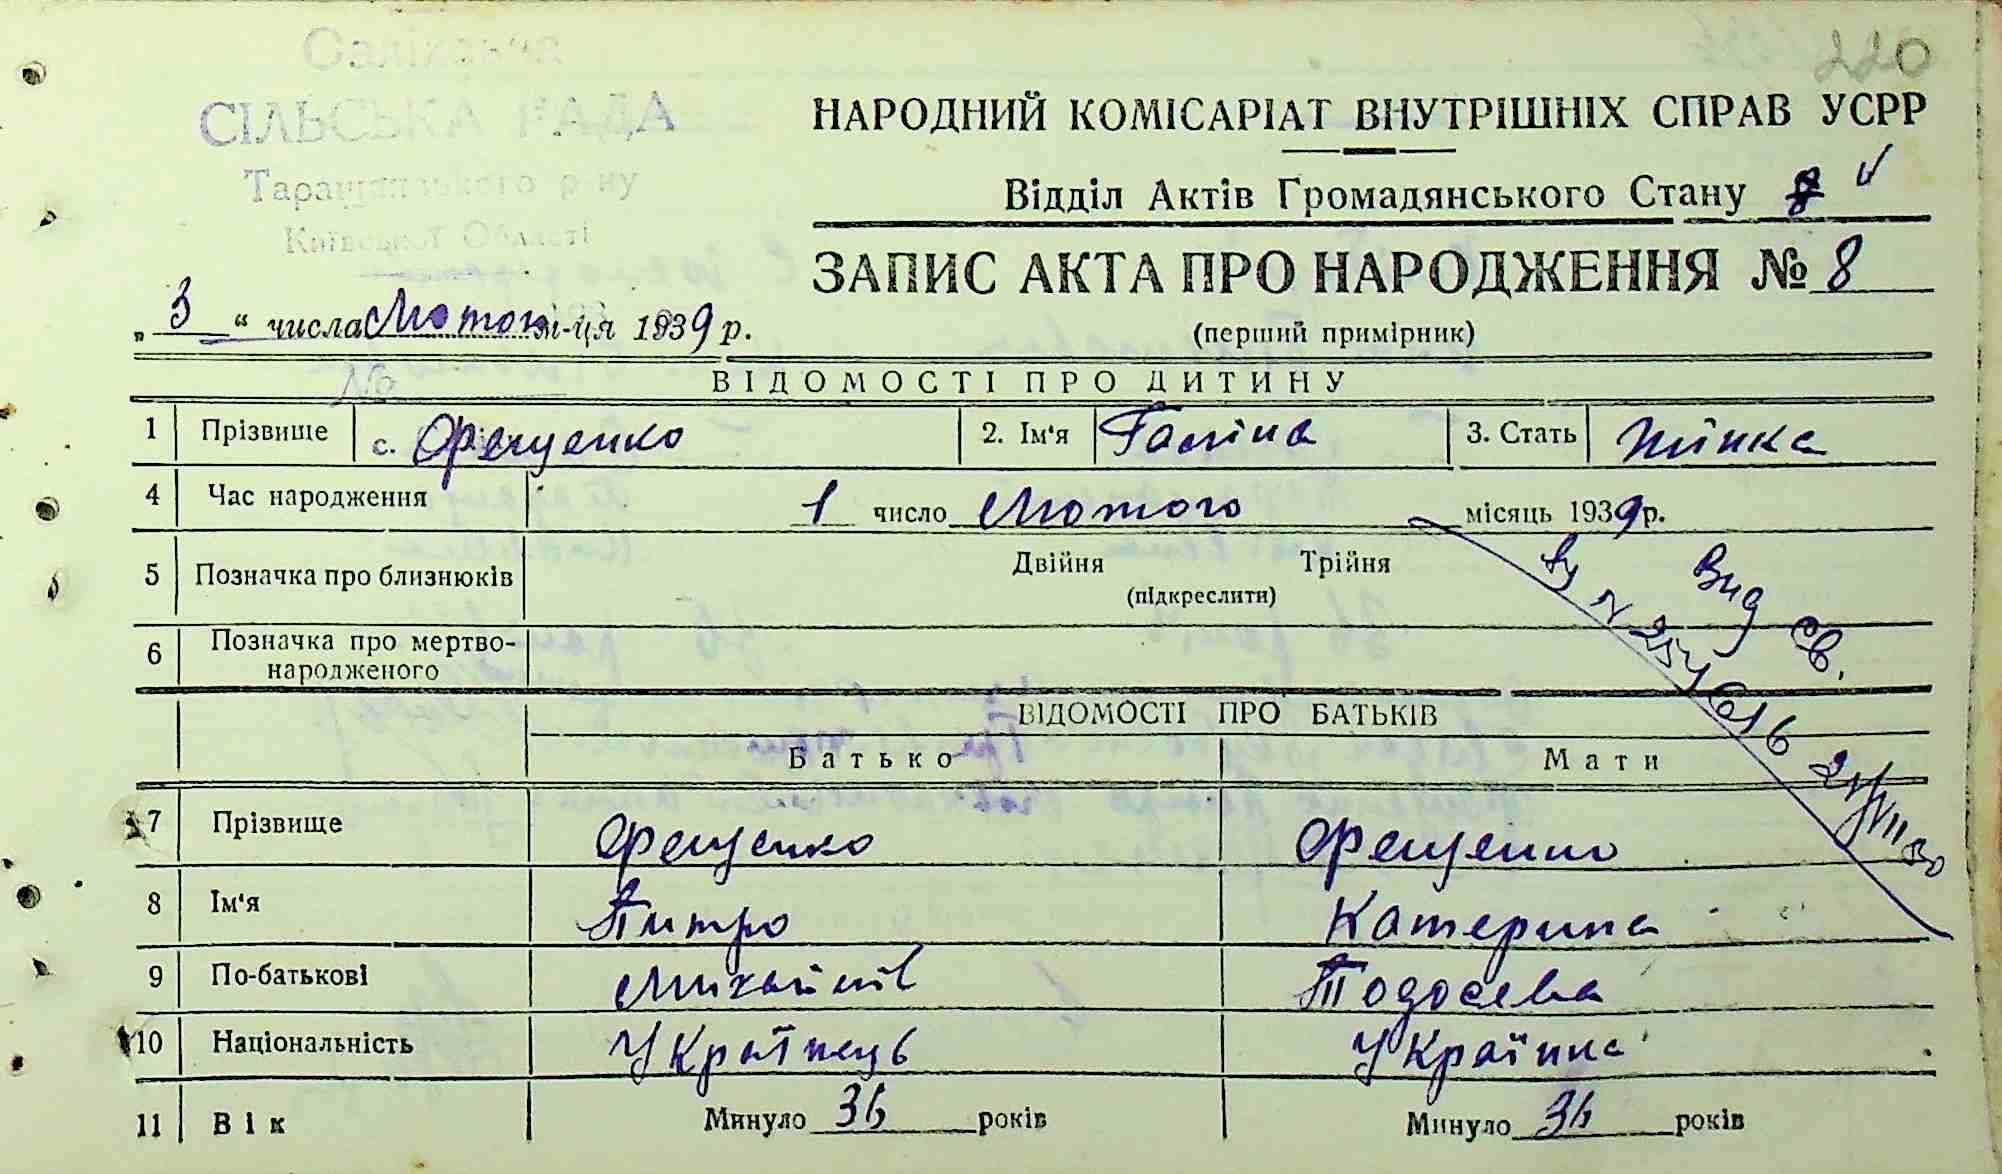 220
Саліхська
СІЛЬСЬКА РАДА
Таращанського р-ну
Київської Області
НАРОДНИЙ КОМІСАРІАТ ВНУТРІШНІХ СПРАВ УСРР
Відділ Актів Громадянського Стану
ЗАПИС АКТА ПРО НАРОДЖЕННЯ № 8
(перший примірник)
„ 3 “ числа Лютого м-ця 1939 р.
№
ВІДОМОСТІ ПРО ДИТИНУ
1 Прізвище Фещенко 2. Ім'я Галіна 3. Стать Жінка
4 Час народження 1 число Лютого місяць 1939 р.
5 Позначка про близнюків Двійня Трійня
(підкреслити)
Вид св.
6 Позначка про мертвонародженого
ВІДОМОСТІ ПРО БАТЬКІВ
Батько Мати
7 Прізвище Фещенко Фещенко
8 Ім'я Питро Катерина
9 По-батькові Михайлів Тодосева
10 Національність Українець Українка
11 Вік Минуло 36 років Минуло 36 років